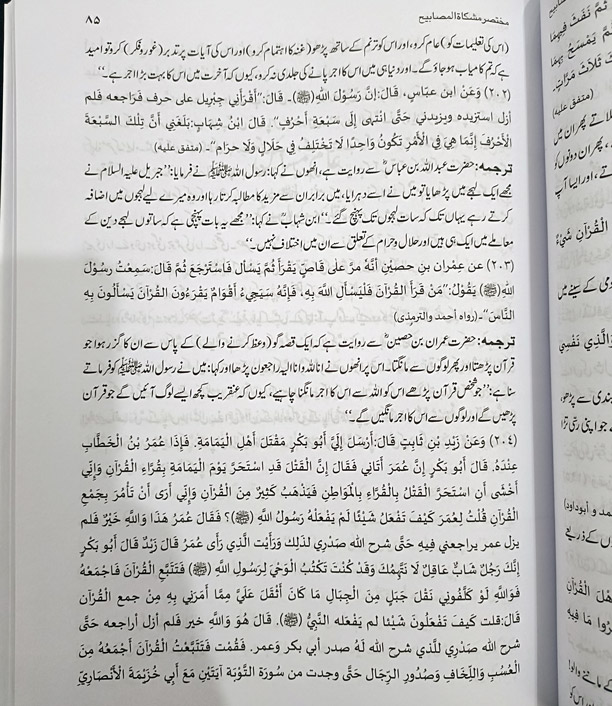 مختصر مشکاۃ المصابیح ۸۵
(اس کی تعلیمات کو) عام کرو، اور اس کو ترنم کے ساتھ پڑھو (غنہ کا اہتمام کرو) اور اس کی آیات پر تدبر (غور وفکر) کرو تو امید
ہے کہ تم کامیاب ہو جاؤ گے۔ اور دنیا ہی میں اس کا اجر پانے کی جلدی نہ کرو، کیوں کہ آخرت میں اس کا بہت بڑا اجر ہے۔“
(۲۰۲) وَعَنِ ابْنِ عباسٍ، قَالَ: إِنَّ رَسُوْلَ اللهِ (ﷺ)۔ قَالَ: ”أَقْرَأَنِي جِبْرِيْلُ عَلَى حَرفٍ فَرَاجعته فلم
أزل استزيده ويزيدني حَتَّى انْتَهَى إِلَى سَبْعَةِ أَحْرُفٍ“. قَالَ ابْنُ شِهَابٍ: بَلَغَنِي أَنَّ تِلْكَ السَّبْعَةَ
الْأَحْرُفَ إِنَّمَا هِيَ فِي الْأَمْرِ تَكُونُ وَاحِدًا لَا تَخْتَلِفُ فِي حَلَالٍ وَلَا حرَام“۔ (متفق علیہ)
ترجمہ: حضرت عبد اللہ بن عباسؓ سے روایت ہے، انھوں نے کہا: رسول اللہ ﷺ نے فرمایا: ”جبریل علیہ السلام نے
مجھے ایک لہجے میں پڑھایا تو میں نے اسے دہرایا، میں برابر ان سے مزید کا مطالبہ کرتا رہا اور وہ میرے لیے لہجوں میں اضافہ
کرتے رہے یہاں تک کہ سات لہجوں تک پہنچ گئے۔“ ابن شہابؒ نے کہا: ”مجھے یہ بات پہنچی ہے کہ ساتوں لہجے دین کے
معاملے میں ایک ہی ہیں اور حلال وحرام کے تعلق سے ان میں اختلاف نہیں۔“
(۲۰۳) عن عِمْران بنِ حصين أَنَّهُ مرَّ عَلَى قاصٍّ يَقْرَأُ ثُمَّ يَسْأَلُ فَاسْتَرْجَعَ ثُمَّ قَالَ: سَمِعْتُ رسُولَ
اللهِ (ﷺ) يَقُوْلُ: ”مَنْ قَرَأَ الْقُرْآنَ فَلْيَسْأَلِ اللهَ بِهِ، فَإِنَّهُ سَيَجِيءُ أَقْوَامٌ يَقْرَءُونَ الْقُرْآنَ يَسْأَلُونَ بِهِ
النَّاسَ“۔ (رواہ أحمد والترمذی)
ترجمہ: حضرت عمران بن حصینؓ سے روایت ہے کہ ایک قصہ گو (وعظ کرنے والے) کے پاس سے ان کا گزر ہوا جو
قرآن پڑھتا اور پھر لوگوں سے مانگتا۔ اس پر انھوں نے انا للہ وانا الیہ راجعون پڑھا اور کہا: میں نے رسول اللہ ﷺ کو فرماتے
سنا ہے: ”جو شخص قرآن پڑھے اس کو اللہ سے اس کا اجر مانگنا چاہیے، کیوں کہ عنقریب کچھ ایسے لوگ آئیں گے جو قرآن
پڑھیں گے اور لوگوں سے اس کا اجر مانگیں گے۔“
(۲۰۴) وَعَنْ زَيْدِ بْنِ ثَابِتٍ قَالَ: أَرْسَلَ إِلَيَّ أَبُو بَكْرٍ مَقْتَلَ أَهْلِ الْيَمَامَةِ. فَإِذَا عُمَرُ بْنُ الْخَطَّابِ
عِنْدَهُ. قَالَ أَبُو بَكْرٍ إِنَّ عُمَرَ أَتَانِي فَقَالَ إِنَّ الْقَتْلَ قَدِ اسْتَحَرَّ يَوْمَ الْيَمَامَةِ بِقُرَّاءِ الْقُرْآنِ وَإِنِّي
أَخْشَى أَنِ اسْتَحَرَّ الْقَتْلُ بِالْقُرَّاءِ بِالْمَوَاطِنِ فَيَذْهَبُ كَثِيرٌ مِنَ الْقُرْآنِ وَإِنِّي أَرَى أَنْ تَأْمُرَ بِجَمْعِ
الْقُرْآنِ قُلْتُ لِعُمَرَ كَيْفَ تَفْعَلُ شَيْئًا لَمْ يَفْعَلْهُ رَسُولُ اللَّهِ (ﷺ)؟ فَقَالَ عُمَرُ هَذَا وَاللَّهِ خَيْرٌ فلم
يزل عمر يراجعني فِيهِ حَتَّى شرح الله صَدْرِي لذَلِك وَرَأَيْت الَّذِي رَأَى عُمَرُ قَالَ زَيْدٌ قَالَ أَبُو بَكْرٍ
إِنَّكَ رَجُلٌ شَابٌّ عَاقِلٌ لَا نَتَّهِمُكَ وَقَدْ كُنْتَ تَكْتُبُ الْوَحْيَ لِرَسُولِ اللَّهِ (ﷺ) فَتَتَبَّعِ الْقُرْآنَ فَاجْمَعْهُ
فَوَاللَّهِ لَوْ كَلَّفُونِي نَقْلَ جَبَلٍ مِنَ الْجِبَالِ مَا كَانَ أَثْقَلَ عَلَيَّ مِمَّا أَمَرَنِي بِهِ مِنْ جمع القُرْآن
قَالَ: قلت كيفَ تَفْعَلُونَ شَيْئا لم يفعله النَّبِيُّ (ﷺ). قَالَ هُوَ وَاللَّهِ خير فلم أزل أراجعه حَتَّى
شرح الله صَدْرِي للَّذي شرح الله لَهُ صدر أبي بكر وَعمر. فَقُمْت فَتَتَبَّعْتُ الْقُرْآنَ أَجْمَعُهُ مِنَ
الْعُسُبِ وَاللِّخَافِ وَصُدُورِ الرِّجَال حَتَّى وجدت من سُورَة التَّوْبَة آيَتَيْنِ مَعَ أَبِي خُزَيْمَةَ الْأَنْصَارِيِّ